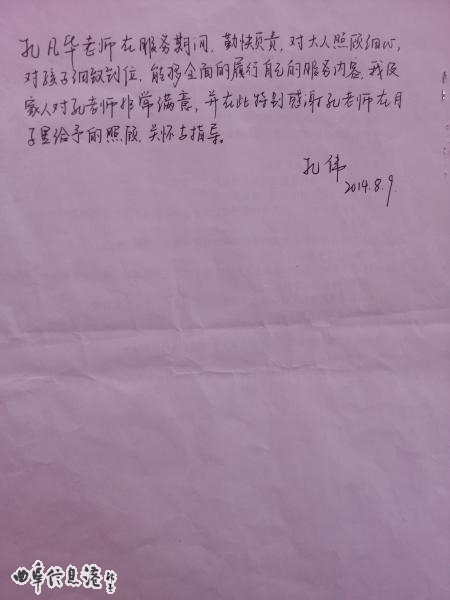 孔凡华老师在服务期间，勤快负责，对大人照顾细心，
对孩子细致到位，能够全面的履行自己的服务内容，我及
家人对孔老师非常满意，并在此特别感谢孔老师在月
子里给予的照顾、关怀与指导。
孔伟
2014.8.9
曲阜信息港